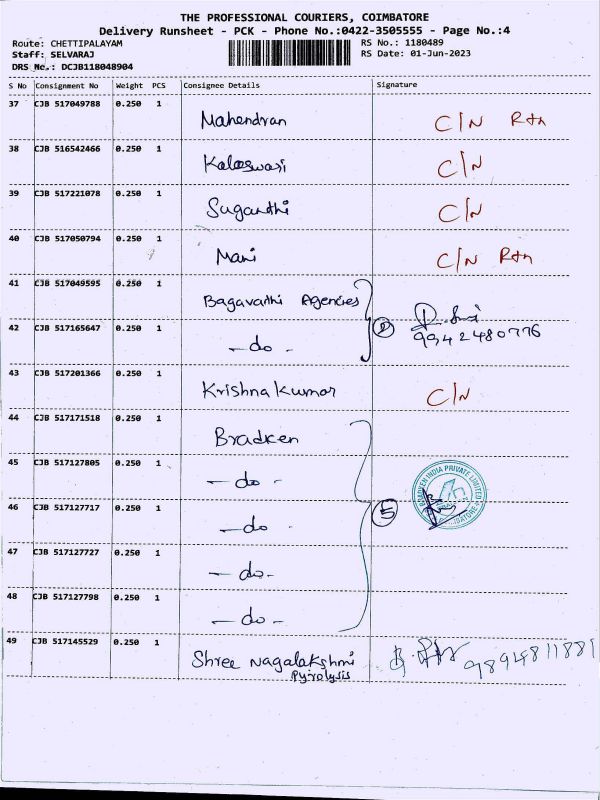 THE PROFESSIONAL COURIERS, COIMBATORE
Delivery Runsheet - PCK - Phone No.:0422-3505555 - Page No.:4
Route: CHETTIPALAYAM
RS No.: 1180489
Staff: SELVARAJ
RS Date: 01-Jun-2023
DRS No.: DCJB118048904
S No Consignment No Weight PCS Consignee Details Signature
37 CJB 517049788 0.250 1 Mahendran C/N Rtn
38 CJB 516542466 0.250 1 Kaleeswari C/N
39 CJB 517221078 0.250 1 Suganthi C/N
40 CJB 517050794 0.250 1 Mani C/N Rtn
41 CJB 517049595 0.250 1 Bagavathi Agencies
42 CJB 517165647 0.250 1 - do - 2 9942480776
43 CJB 517201366 0.250 1 Krishna Kumar C/N
44 CJB 517171518 0.250 1 Bradken
45 CJB 517127805 0.250 1 - do -
46 CJB 517127717 0.250 1 - do - 5 BRADKEN INDIA PRIVATE LIMITED COIMBATORE
47 CJB 517127727 0.250 1 - do -
48 CJB 517127798 0.250 1 - do -
49 CJB 517145529 0.250 1 Shree Nagalakshmi 9894811881
Pyrolysis